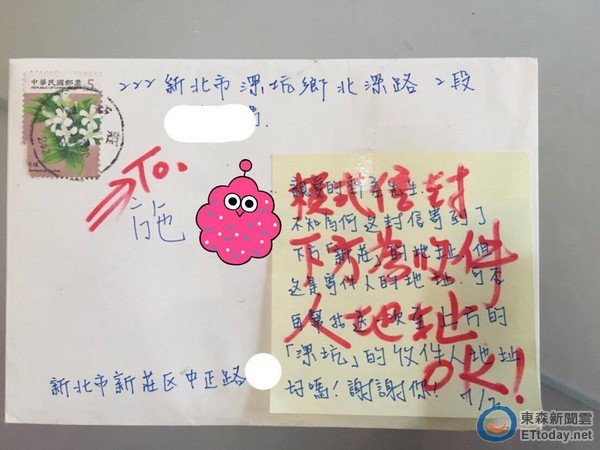 中華民國郵票 5
222新北市深坑鄉北深路2段
To.
施
親愛的郵差先生:
不知為何這封信寄到了
下方「新莊」的地址,但
這是寄件人的地址.可否
再幫我送一次至上方的
「深坑」的收件人地址
好嗎!謝謝你!
橫式信封
下方為收件
人地址
OK!
新北市新莊区中正路
東森新聞雲
ETtoday.net